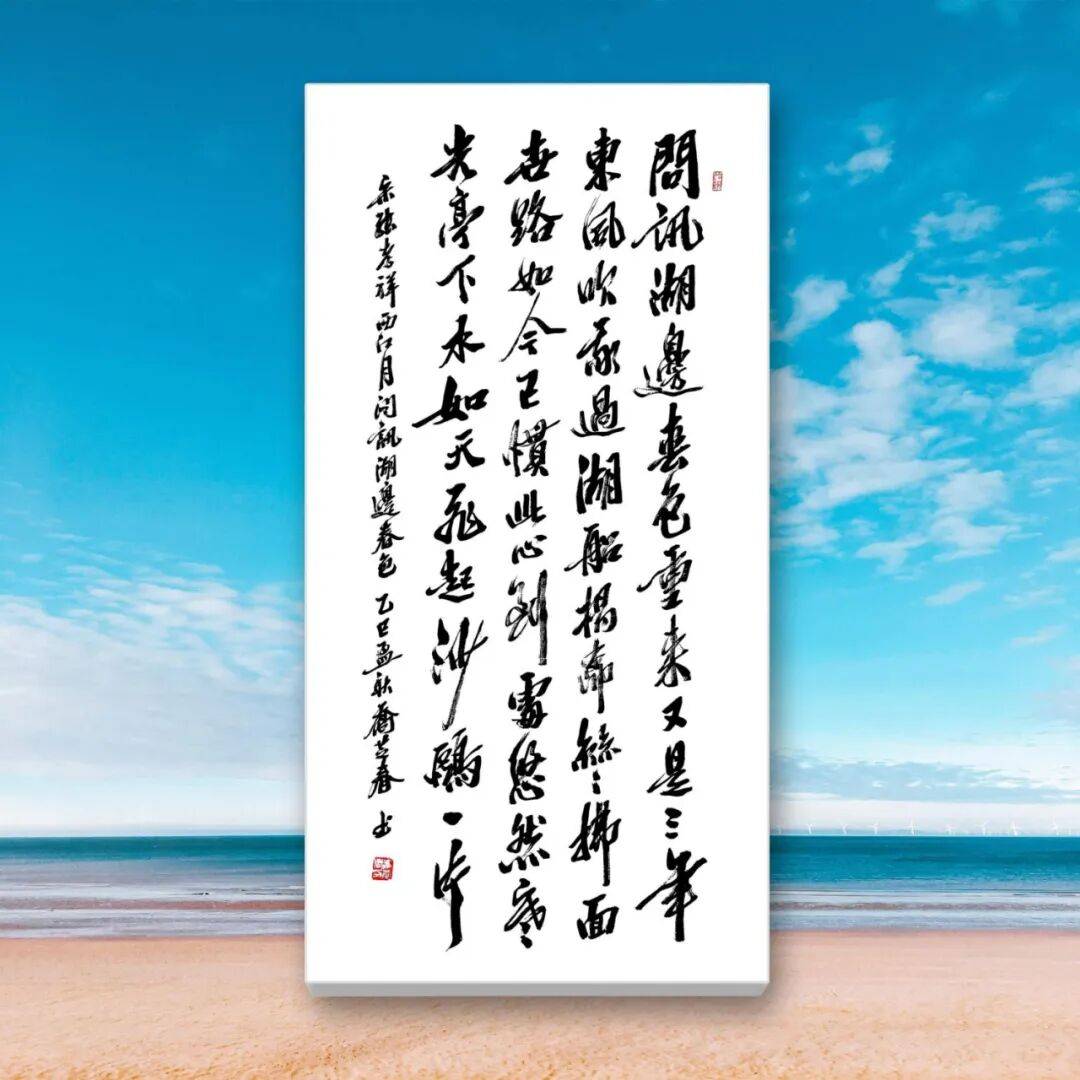 問訊湖邊春色重来又是三年
東風吹我過湖船楊柳絲〻拂面
世路如今已慣此心到處悠然寒
光亭下水如天飛起沙鷗一片
宋張孝祥西江月問訊湖邊春色 乙巳孟秋春书